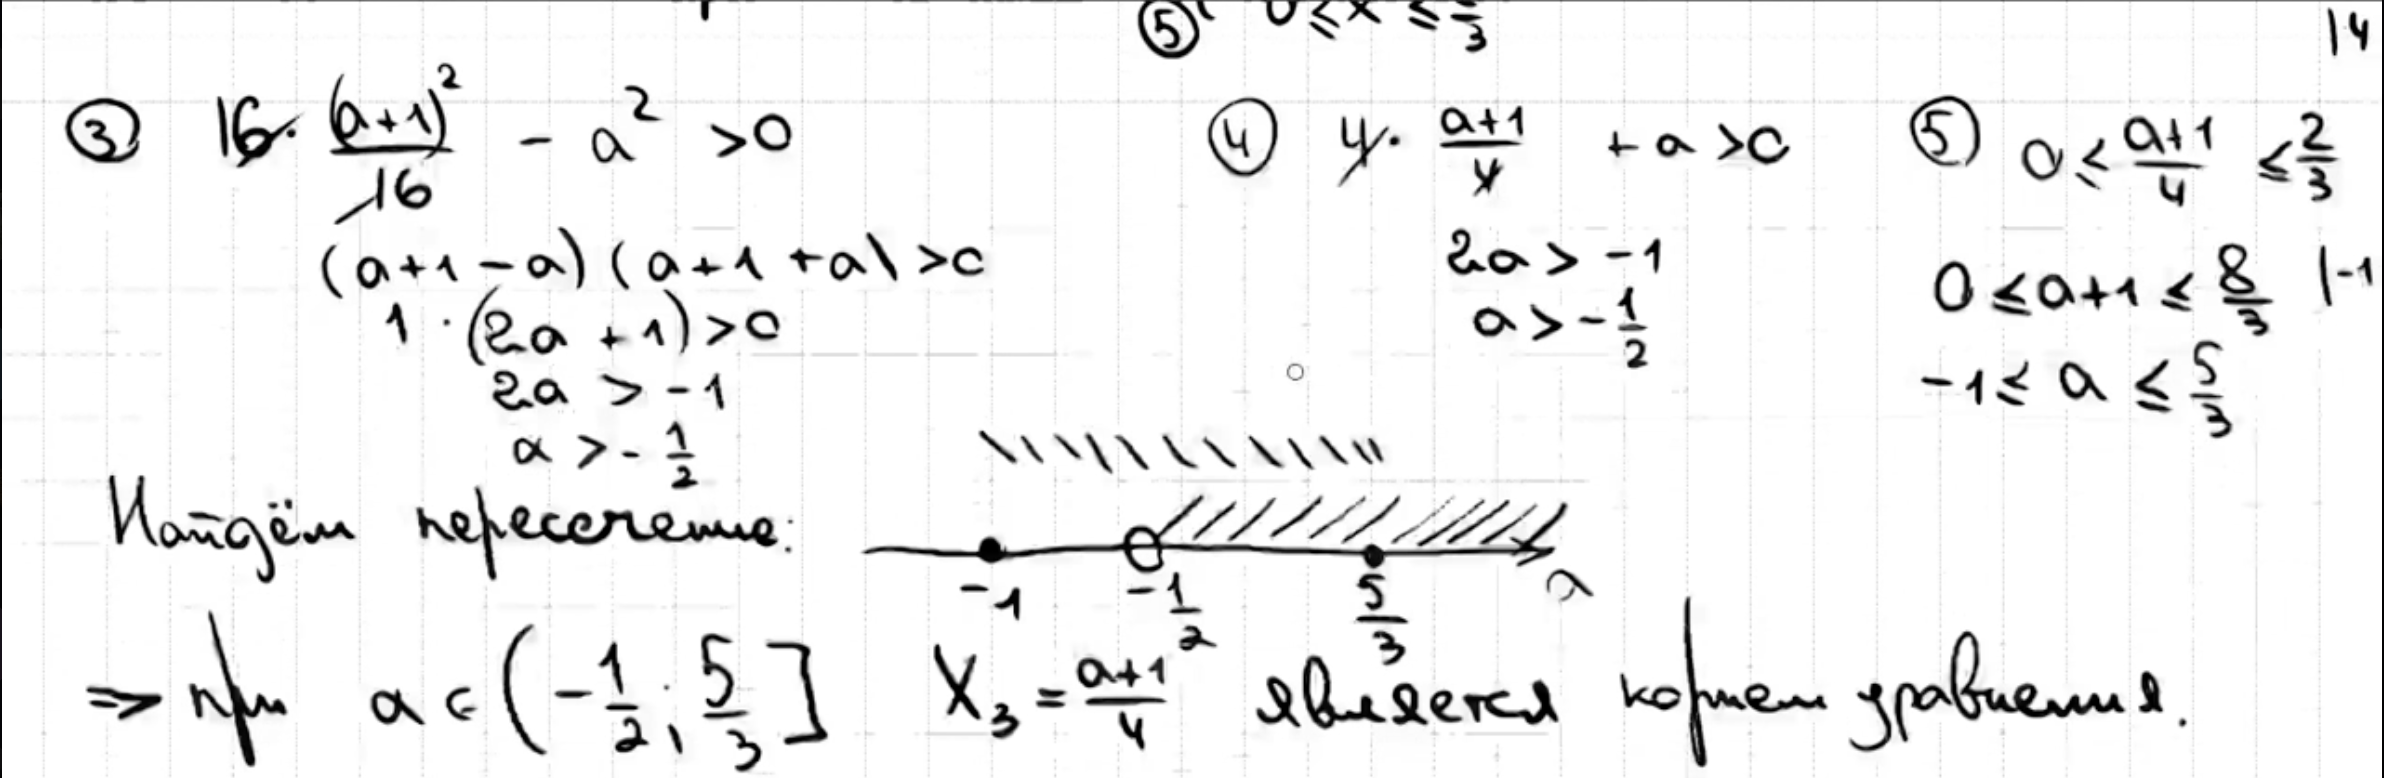 ⑤ 0 ≤ x ≤ 2/3
14
③ 16 · (a+1)²/16 - a² > 0
(a+1-a)(a+1+a) > 0
1 · (2a + 1) > 0
2a > -1
a > -1/2
④ 4 · (a+1)/4 + a > 0
2a > -1
a > -1/2
⑤ 0 ≤ (a+1)/4 ≤ 2/3
0 ≤ a+1 ≤ 8/3 |-1
-1 ≤ a ≤ 5/3
Найдём пересечение:
-1 -1/2 5/3 a
⇒ при a ∈ (-1/2; 5/3] X₃ = (a+1)/4 является корнем уравнения.